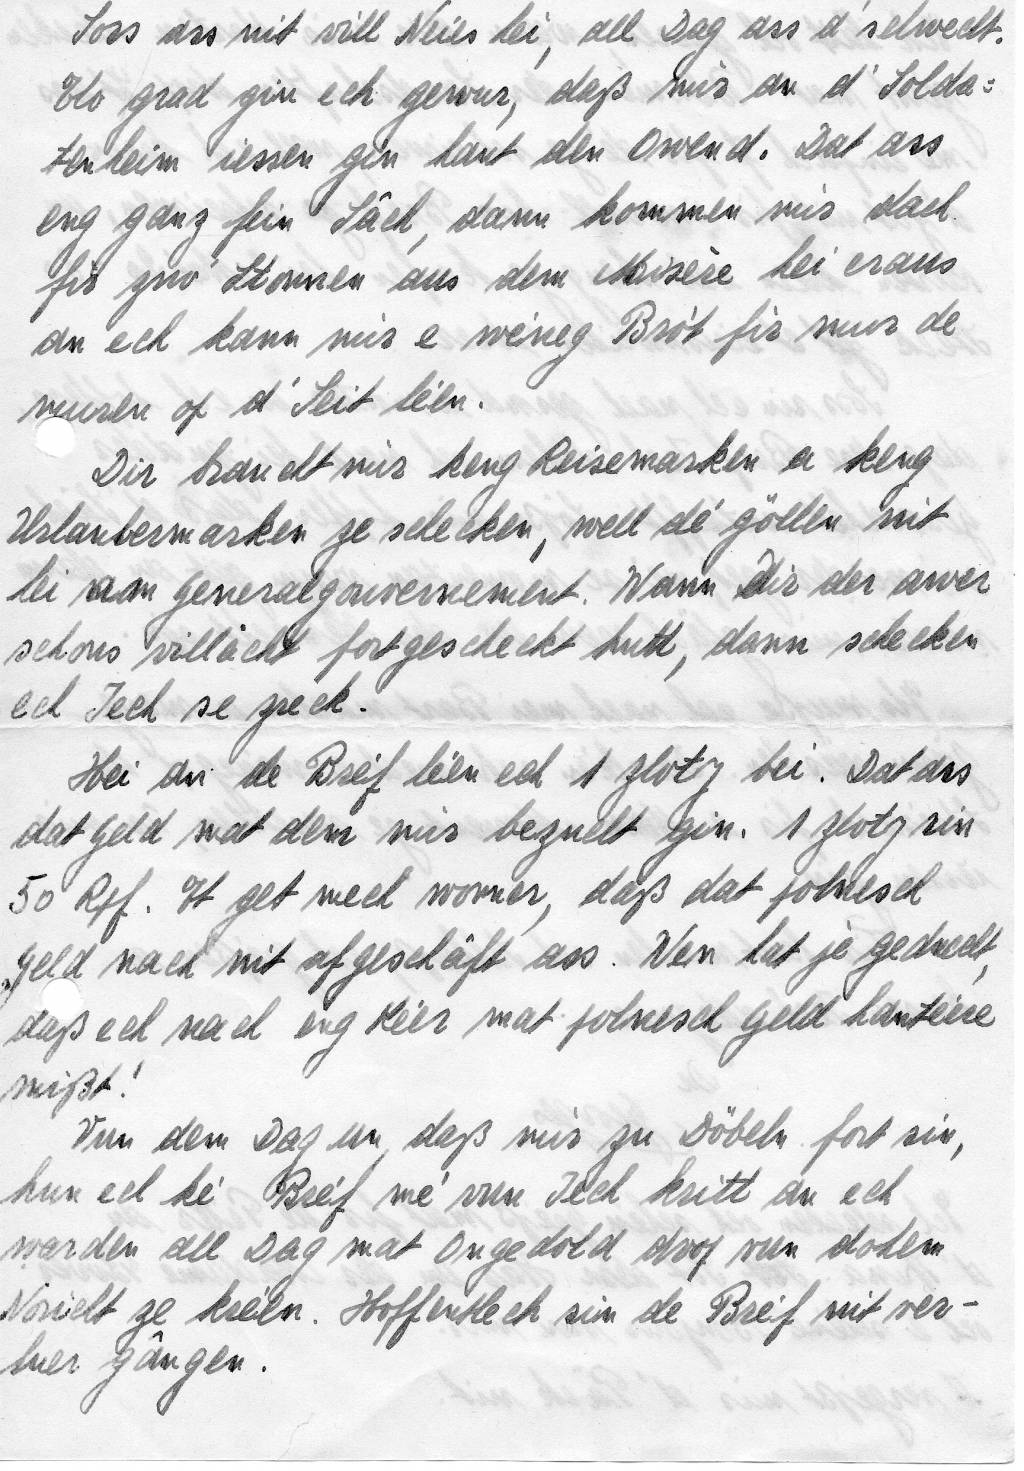 Soss ass nit vill Neies hei, all Dag ass d'selwecht.
Elo grad gin ech gewur, daß mir an d'Solda=
tenheim iessen gin haut den Owend. Dat ass
eng ganz fein Sâch, dann kommen mir dach
fir zwo Stonnen aus dem Misère hei eraus
an ech kann mir e wéineg Brót fir mur de
muren op d'Seit léen.
Dir braucht mir keng Reisemarken a keng
Urlaubermarken ze schecken, well dé göllen nit
hei am Generalgouvernement. Wann Dir der awer
schons villächt fortgescheckt hutt, dann schecken
ech Iech se zreck.
Hei an de Bréif léen ech 1 zloty bei. Dat ass
dat Geld mat dem mir bezuelt gin. 1 zloty sin
50 Rpf. Et get mech wonner, daß dat polnesch
Geld nach nit ofgeschâft ass. Wen hat je geduecht,
daß ech nach eng Kéer mat polnesch Geld hantéiere
mißt!
Vun dem Dag un, daß mir zu Döbeln fort sin,
hun ech ké Bréif mé vun Iech kritt an ech
warden all Dag mat Ongedold drop vun dohem
Noriicht ze kréien. Hoffentlech sin de Bréif nit ver-
luer gângen.